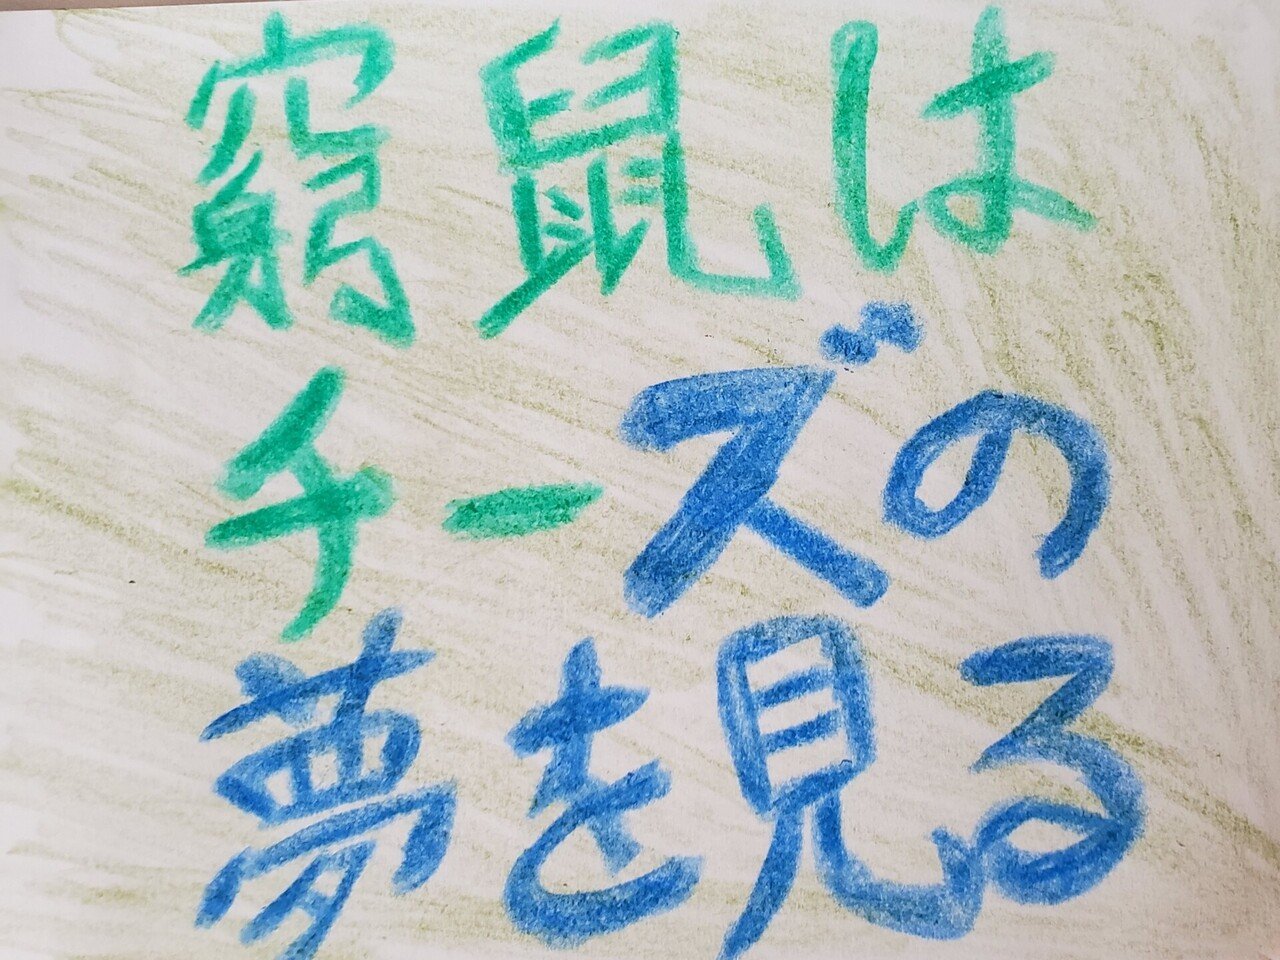 窮鼠は
チーズの
夢を見る